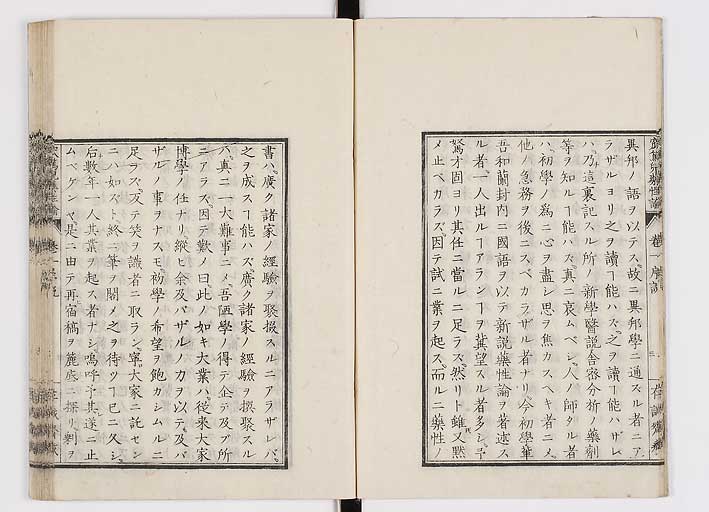 異邦ノ語ヲ以テス、故ニ異邦學ニ通スル者ニア
ラザルヨリハ、之ヲ讀ヿ能ハズ、之ヲ讀ヿ能ハザレ
ハ、乃這裏記スル所ノ新學醫説舎密分析ノ藥劑
等ヲ知ルヿ能ハズ、真ニ哀ムベシ、人ノ師タル者
ハ、初學ノ為ニ心ヲ盡シ思ヲ焦カスヘキ者ニメ、
他ノ急務ヲ後ニスベカラザル者ナリ今初學輩
吾和蘭封内ニ國語ヲ以テ新説藥性論ヲ著述ス
ル者、一人出ルヿアランヿヲ冀望スル者多シ、予
駑才固ヨリ其任ニ當ルニ足ラズ、然リト雖又黙
メ止ベカラズ、因テ試ニ業ヲ起ス、而ルニ藥性ノ
書ハ、廣ク諸家ノ經驗ヲ聚掇スルニアラザレバ、
之ヲ成スヿ能ハズ、廣ク諸家ノ經驗ヲ撰聚スル
ハ、真ニ一大難事ニメ、吾陋學ノ得テ企テ及ブ所
ニアラズ、因テ歎ノ曰此ノ如キ大業ハ、從来大家
博學ノ任ナリ縦ヒ余及バザルノ力ヲ以テ、及バ
ザルノ事ヲナスモ、初學ノ希望ヲ飽カシムルニ
足ラズ、反テ笑ヲ識者ニ取ラン、寧大家ニ託セン
ニハ如ズト、終ニ筆ヲ閣メ之ヲ待ツヿ已ニ久シ、
后數年一人其業ヲ起ス者ナシ嗚呼予其遂ニ止
ムベケンヤ、是ニ由テ再宿稿ヲ麓底ニ探リ、剰ヲ